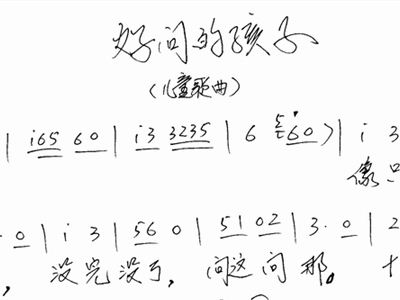 好问的孩子
(儿童歌曲)
| i65 60 | i3 3235 | 6 5 60) | i 3
像只
· 0 | i 3 | 56 0 | 51 02 | 3· 0 | 2
, 没完没了, 问这问那。 十